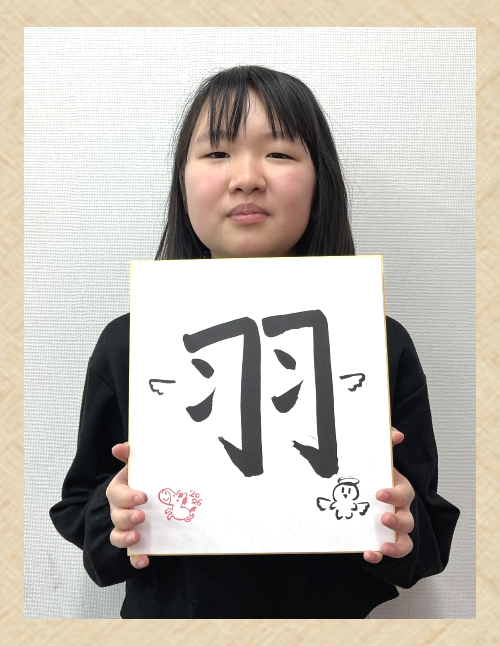 羽
20
26